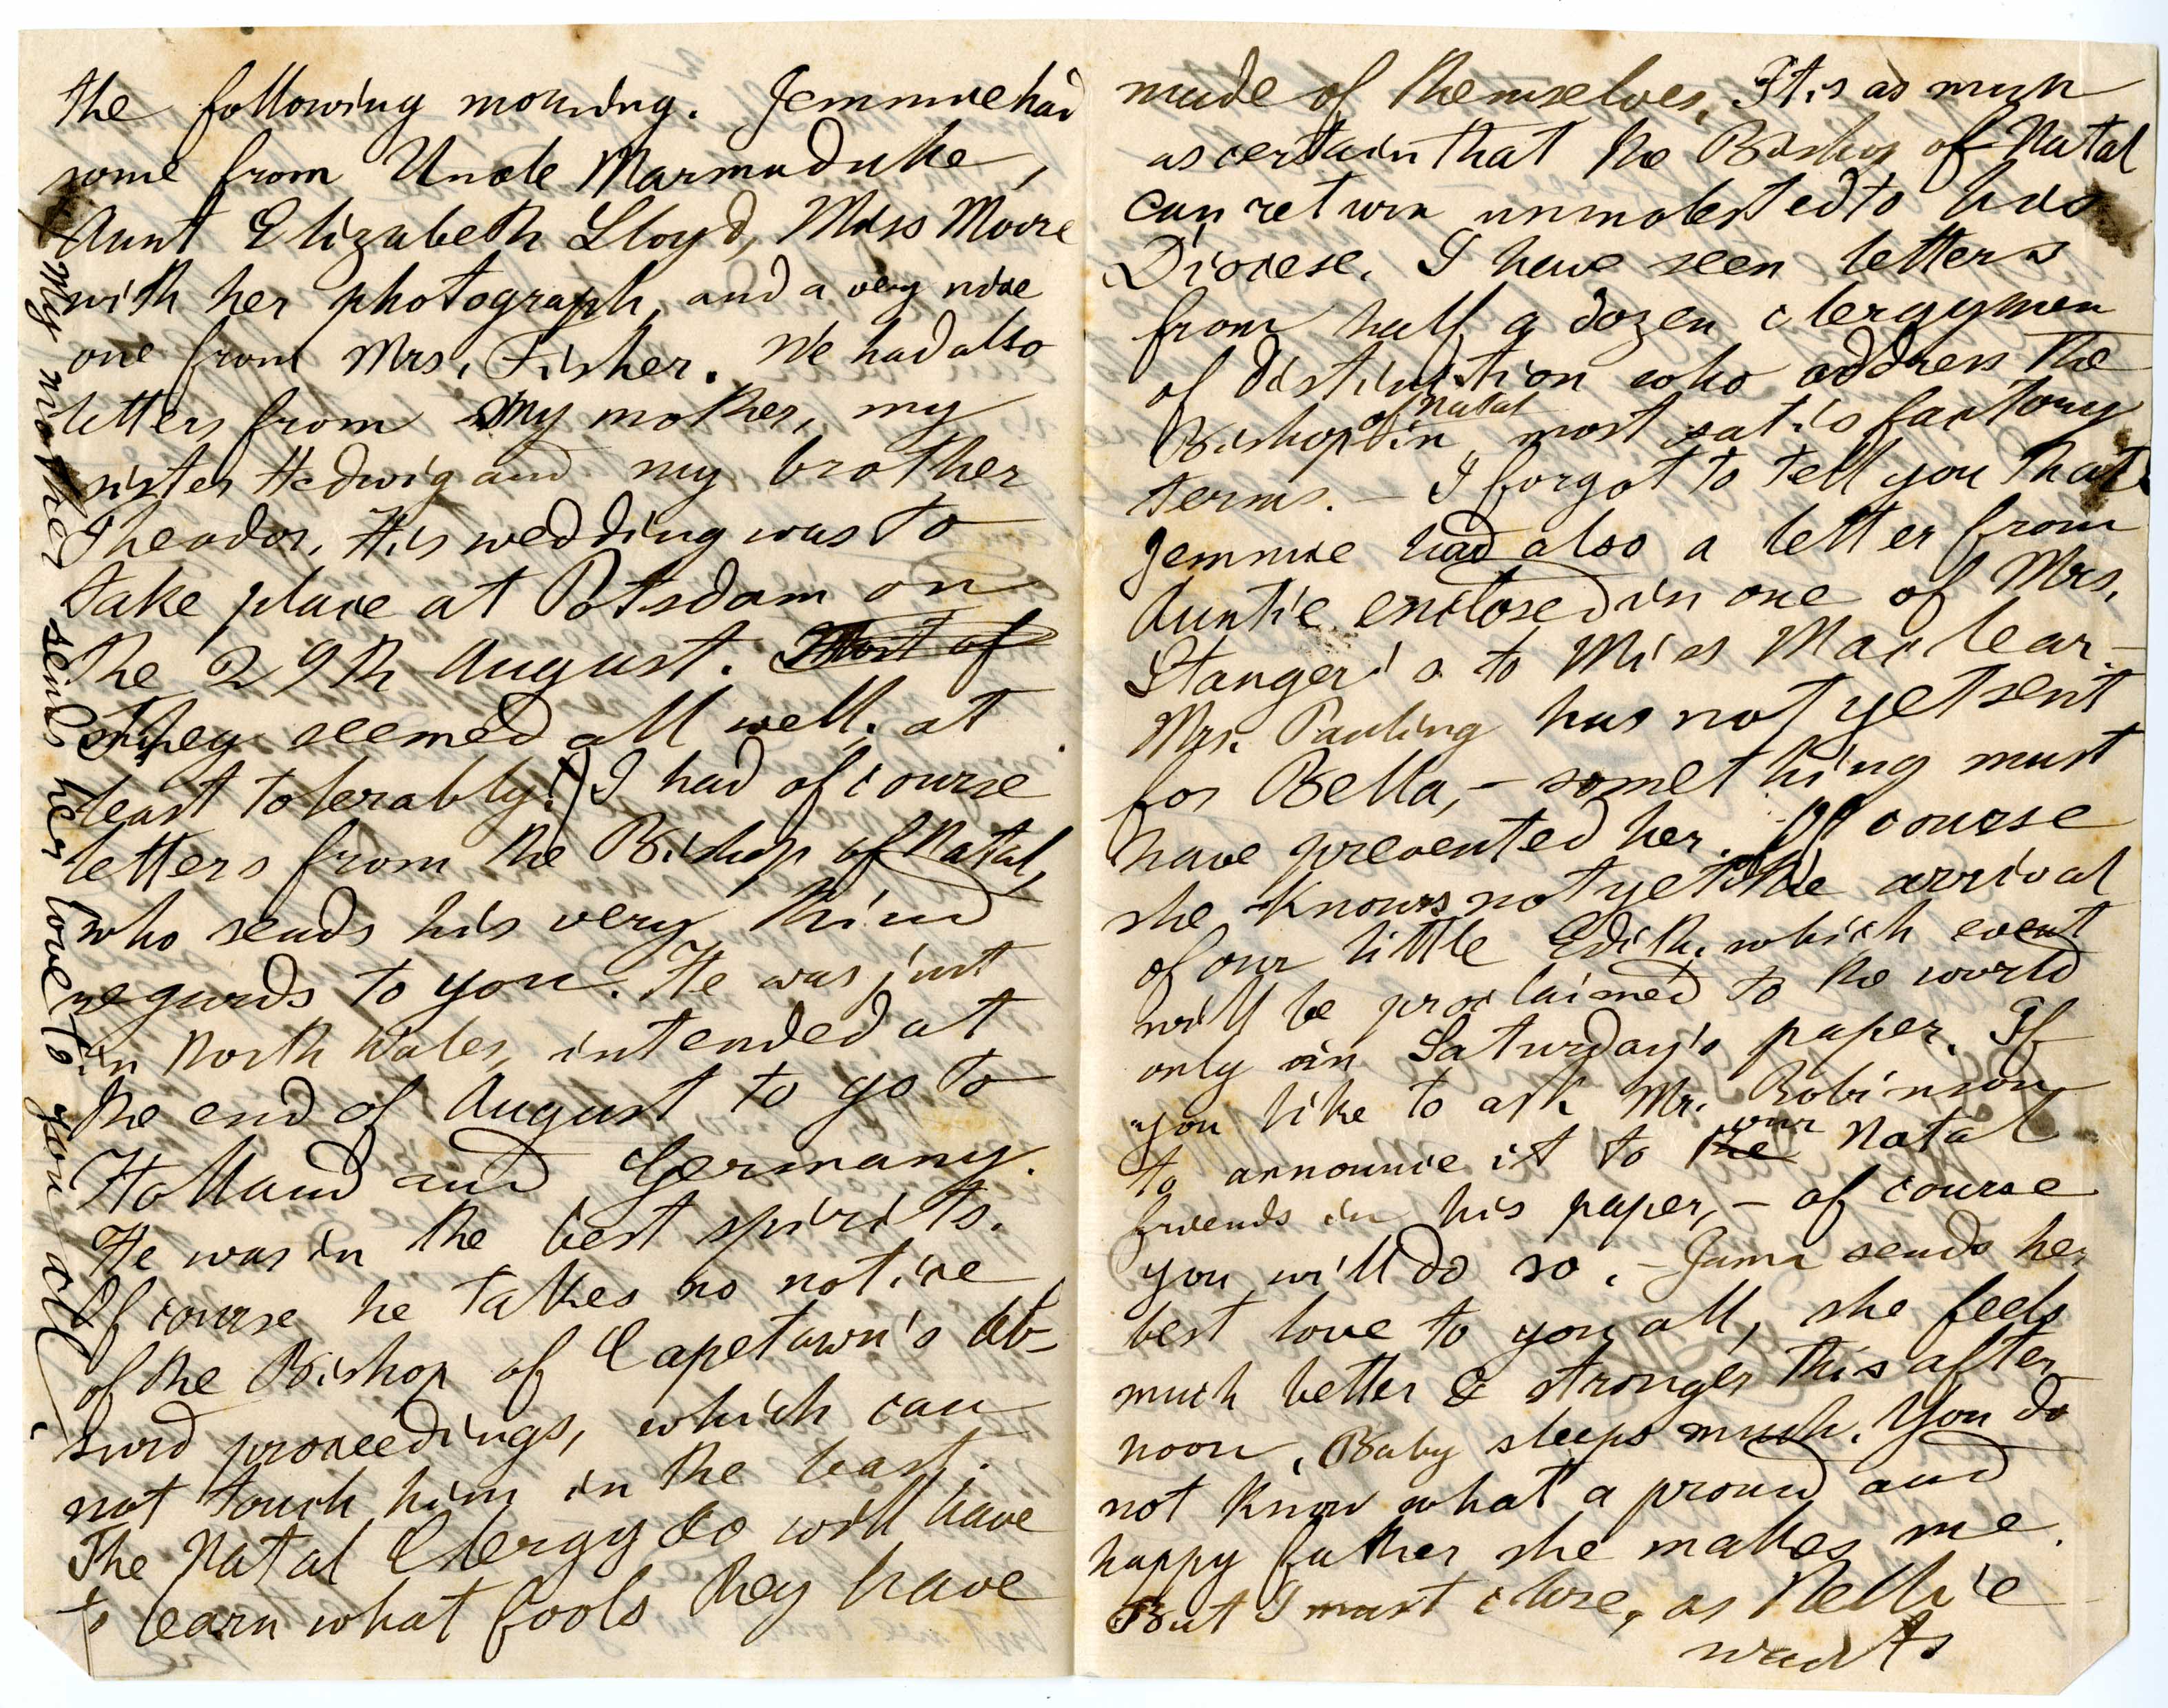 the following morning. Jemmie had
some from Uncle Marmaduke,
Aunt Elizabeth Lloyd, Miss Moore
with her photograph, and a very nice
one from Mrs. Fisher. We had also
letters from my mother, my
sister Hedwig and my brother
Theodor. His wedding was to
take place at Potsdam on
the 29th August. Most of
They seemed all well, at
least tolerably.) I had of course
letters from the Bishop of Natal,
who sends his very kind
regards to you. He was just
in North Wales, intended at
the end of August to go to
Holland and Germany.
He was in the best spirits.
Of course he takes no notice
of the Bishop of Capetown's ab-
surd proceedings, which can
not touch him in the least.
The Natal Clergy do will have
to learn what fools they have
My mother sends her love to you all.
made of themselves. It is as much
as certain that the Bishop of Natal
can return unmolested to his
Diocese. I have seen letters
from half a dozen clergymen
of distinction who address the
Bishop of Natal in most satisfactory
terms. — I forgot to tell you that
Jemmie had also a letter from
Auntie enclosed in one of Mrs.
Stanger's to Miss Maclear —
Mrs. Pauling has not yet sent
for Bella, — something must
have prevented her. Of course
she knows not yet the arrival
of our little Edith, which event
will be proclaimed to the world
only in Saturday's paper. If
you like to ask Mr. Robinson
to announce it to the our Natal
friends in his paper, — of course
you will do so. — Jema sends her
best love to you all, she feels
much better & stronger this after
noon. Baby sleeps much. You do
not know what a proud and
happy father she makes me.
But I must close, as Nellie
wants